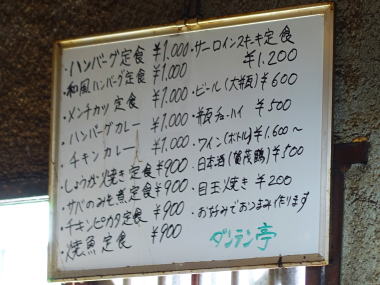 ・ハンバーグ定食 ¥1,000
・和風ハンバーグ定食 ¥1,000
・メンチカツ定食 ¥1,000
・ハンバーグカレー ¥1,000
・チキンカレー ¥1,000
・しょうが焼き定食 ¥900
・サバのみそ煮定食 ¥900
・チキンピカタ定食 ¥900
・焼魚定食 ¥900
・サーロインステーキ定食
¥1,200
・ビール(大瓶) ¥600
・瓶チューハイ ¥500
・ワイン(ボトル) ¥1,600~
・日本酒(賀茂鶴) ¥500
・目玉焼き ¥200
・お好みでおつまみ作ります
ダンテン亭